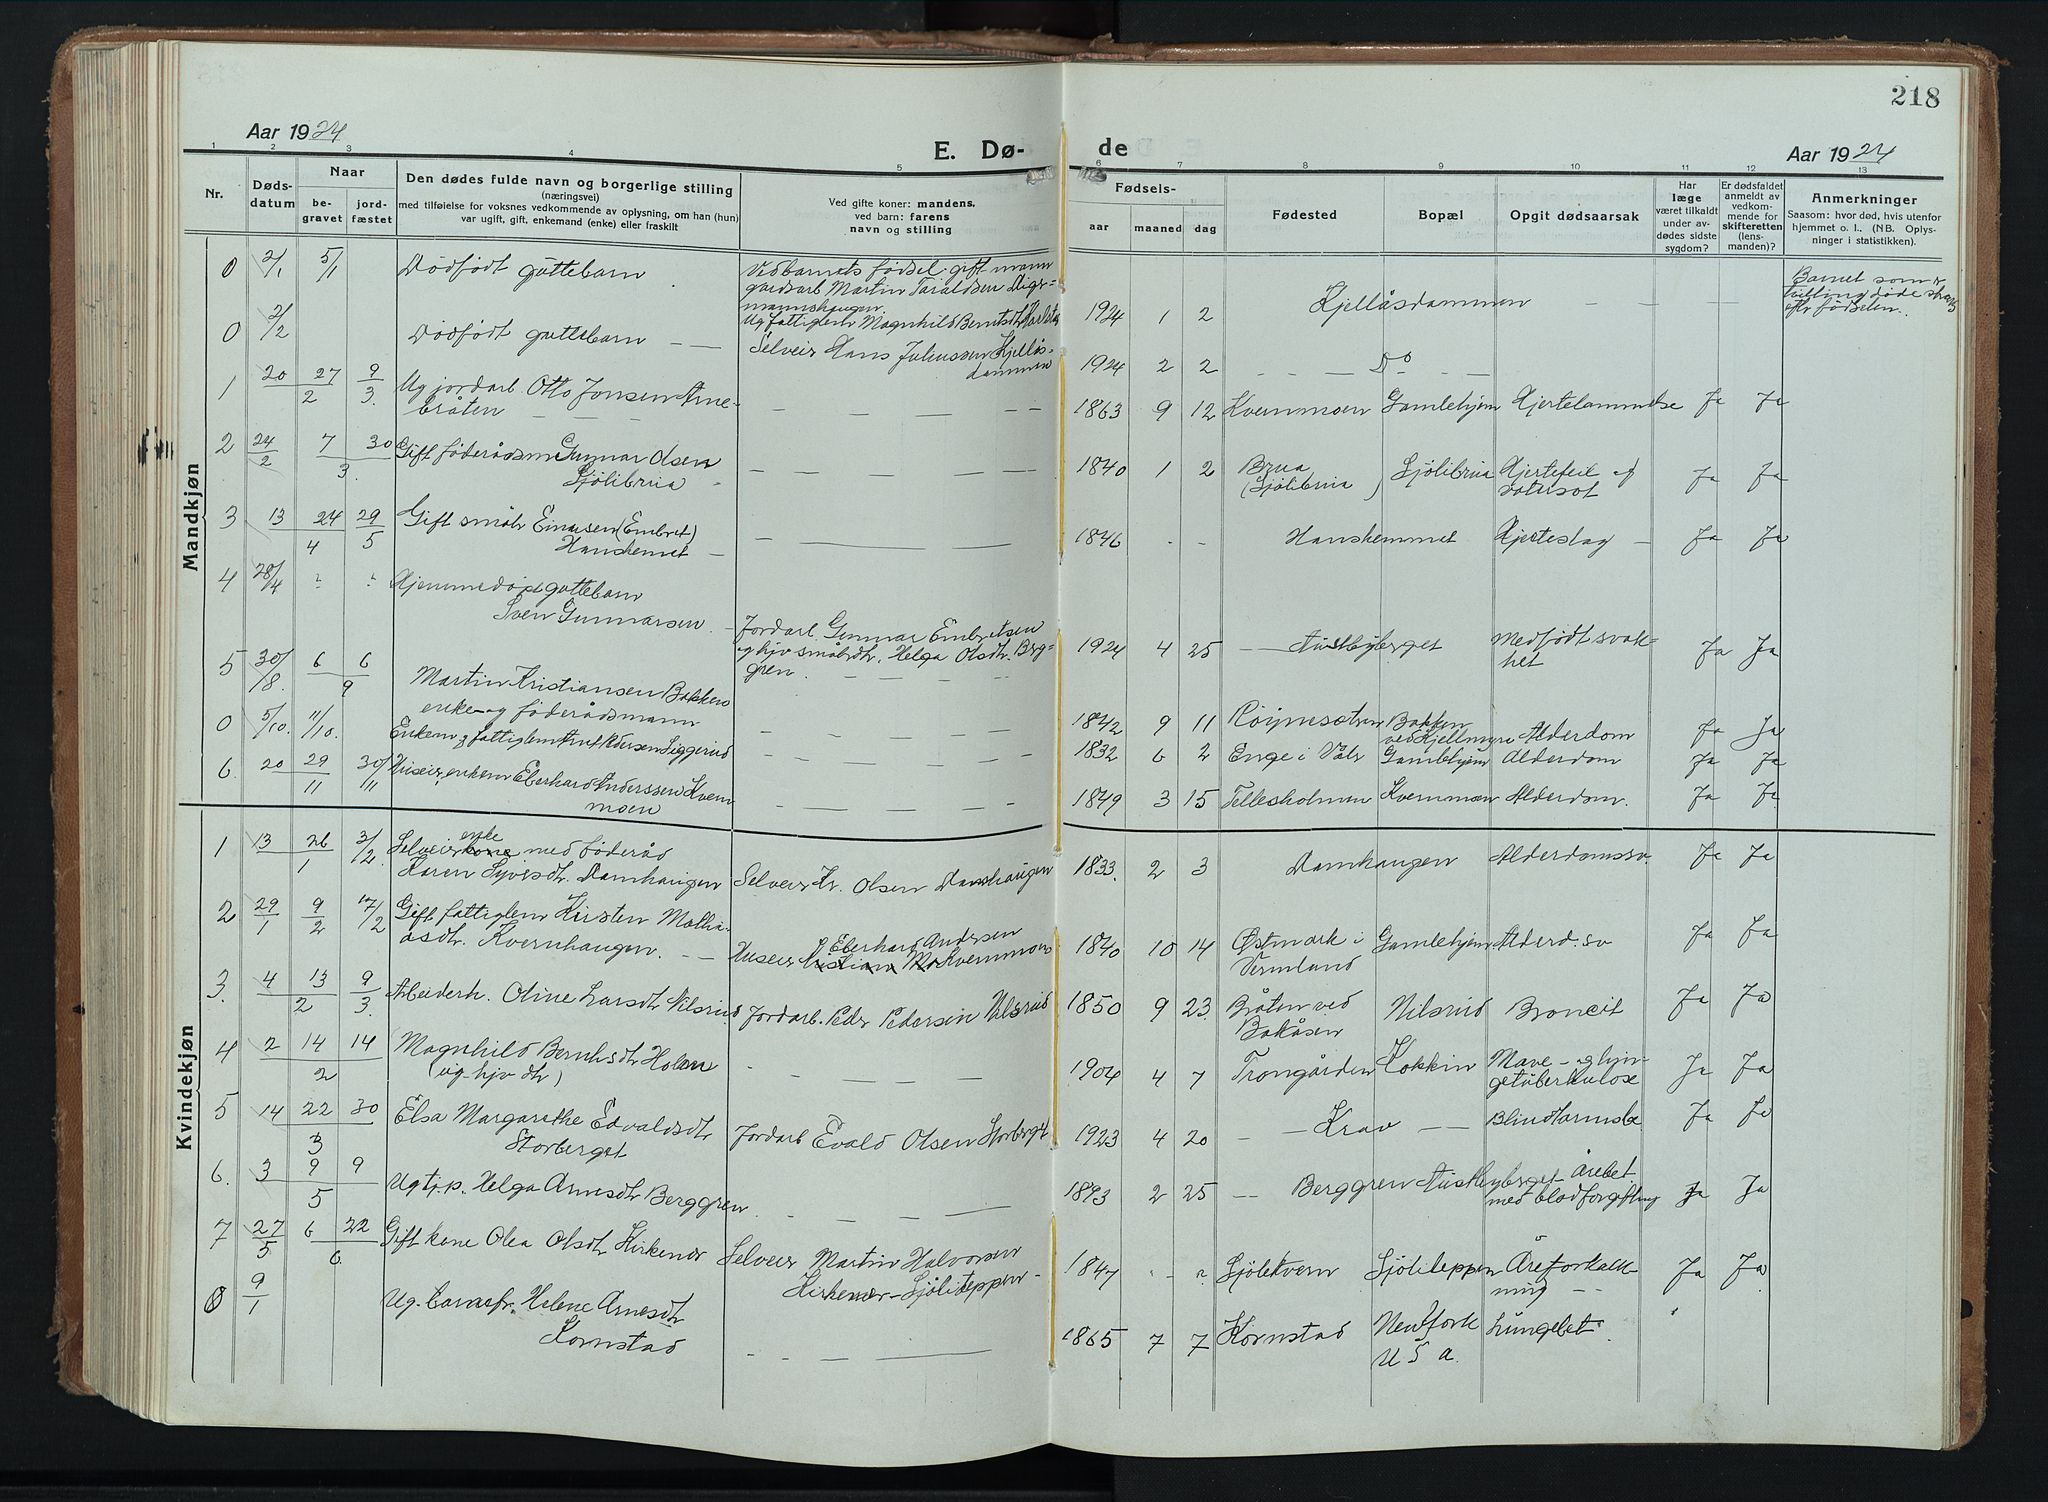 218
Aar 1924
E. Dø-
de
Aar 1924
1 2 3 4 5 6 7 8 9 10 11 12 13
Nr.
Døds-
datum
Naar
be-
gravet
jord-
fæstet
Den dødes fulde navn og borgerlige stilling
(næringsvei)
med tilføielse for voksnes vedkommende av oplysning, om han (hun)
var ugift, gift, enkemand (enke) eller fraskilt
Ved gifte koner: mandens,
ved barn: farens
navn og stilling
Fødsels-
aar maaned dag
Fødested
Bopæl
Opgit dødsaarsak
Har
læge
været tilkaldt
under av-
dødes sidste
sygdom?
Er dødsfaldet
anmeldt av
vedkom-
mende for
skifteretten
(lens-
manden)?
Anmerkninger
Saasom: hvor død, hvis utenfor
hjemmet o. l., (NB. Oplys-
ninger i statistikken).
Mandkjøn
0 2/1 5/1 Dødfødt guttebarn
Ved barnets fødsel gift mann
gardsarb Martin Taraldsen
Ug fattiglem Magnhild Berntsdtr
1924 1 2 Kjellåsdammen — — —
Barnet som
tvilling døde straks
eftr fødselen.
0 2/2 Dødfødt guttebarn — —
Selveier Hans Juliussen Kjellås-
dammen
1924 2 2 — — Do — —
1 20 27 9
2 3.
Ug jordarb Otto Jonsen Arne-
bråten — — —
1863 9 12 Kvernmoen Gamlehjem Hjertelammelse Ja Ja
2 24/2 7 30
3
Gift føderådsm Gunnar Olsen
Sjølibrua
1840 1 2 Brua
(Sjølibrua) Sjølibrua Hjertefeil
vatersot Ja Ja
3 13 24 29
4 5
Gift småbr (Embret)
Hanskemmet
1846 - - Hanskemmet Hjerteslag Ja Ja
4 28/4 Hjemmedøpt guttebarn
Sven Gunnarsen
Jordarb. Gunnar Embretsen
og hjv småbrdtr. Helga Olsdtr. Berg-
gren
1924 4 25 Austbyberget Medfødt svak-
het Ja Ja
5 30/8 6 6
9
Martin Kristiansen Bakken
enke- og føderådsmann
1842 9 11 Bakken
ved Kjellmyra Alderdom Ja Ja
0 5/10. 11/10. Enkem og fattiglem
1832 6 2 Enge i Våler Gamlehjem Alderdom Ja Ja
6 20 29 30/11
11
Huseier, enkem Eberhard Anderssen Kvern-
moen
1849 3 15 Tellesholmen Kvernmoen Alderdom. Ja Ja
Kvindekjøn
1 13 26 3/2
1
Selveier enke kone med føderåd
Karen Syversdtr. Damhaugen
Selveier Kr. Olsen Damhaugen
1833. 2 3 Damhaugen Alderdomssv Ja Ja
2 29/1 9/2 17/2
Gift fattiglem Kirsten Mathi-
asdtr. Kvernhaugen. — —
Eberhard Andersen
Huseier Kristian Kvernmoen
1840 10 14 Østmark i
Vermland Gamlehjem Alderd.sv Ja Ja
3. 4 13 9
2 3.
Arbeiderk. Oline Larsdtr Nilsrud
Jordarb. Peder Pedersen Nilsrud
1850 9 23 Bråten ved
Bakåsen Nilsrud Broncit Ja Ja
4 2 14 14
2
Magnhild Bernhsdtr Holen
(ug hjv dtr)
1904 4 7 Trongården Kokkin Mave- og hjer-
netuberkulose Ja Ja
5 14 22 30
3
Elsa Margarethe Edvaldsdtr
Storberget
Jordarb Evald Olsen Storberget
1923 4 20 — — Krav — — Blindtarmsb Ja Ja
6. 3 9 9
5
Ug tj.p. Helga Arnesdtr Berggren
1893 2 25 — — Berggren Austbyberget Årebet.
med blodforgiftning Ja Ja
7 27/5 6 22
6
Gift kone Olea Olsdtr Kirkenær
Selveier Martin Halvorsen
Kirkenær - Sjøliteppen -
1847 - - Sjølikvern Sjøliteppen Åreforkalk-
ning — Ja Ja
0 9/1 Ug. barnefr. Helene Arnesdtr
Kornstad
1865 7 7 Kornstad New York
U S a. Lungebet.